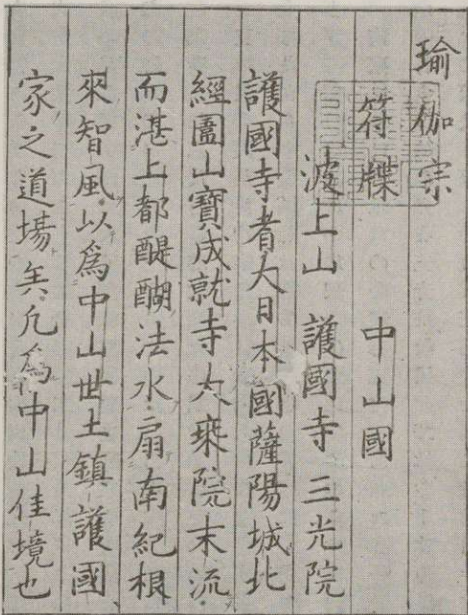 瑜伽宗
符牒　中山國
波上山　護國寺　三光院
護國寺者大日本國薩陽城北
經圍山寶成就寺大乘院末流
而湛上都醍醐法水扇南紀根
來智風以為中山世土鎮護國
家之道場矣凡為中山佳境也